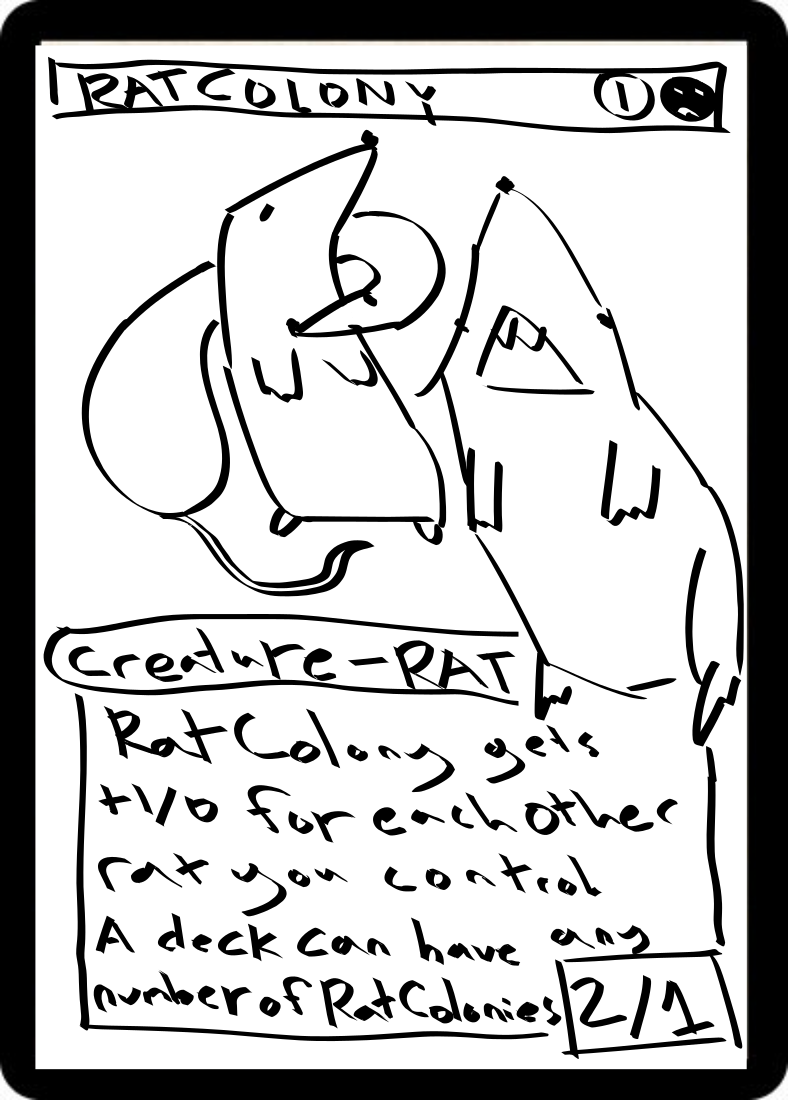 RAT COLONY 1
Creature - RAT
Rat Colony gets
+1/0 for each other
rat you control
A deck can have any
number of Rat Colonies
2/1